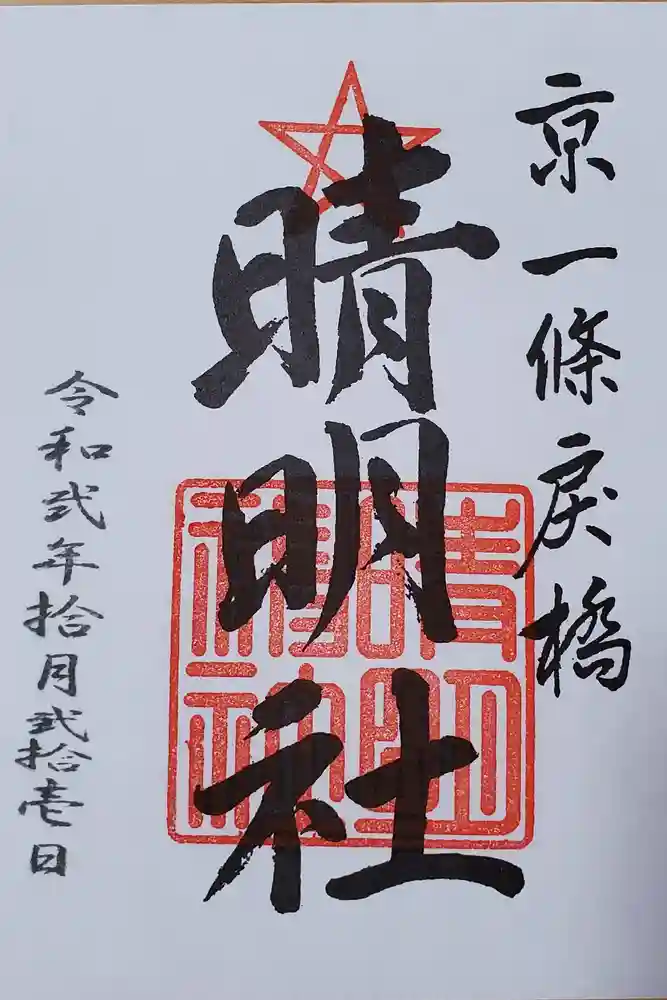 京一條戻橋
晴明社
令和弐年拾月弐拾壱日